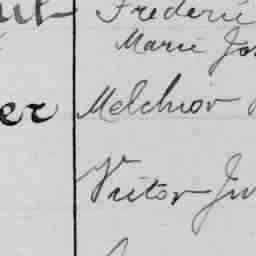 Frédéric
Marie Jos
er Melchior
Victor Ju